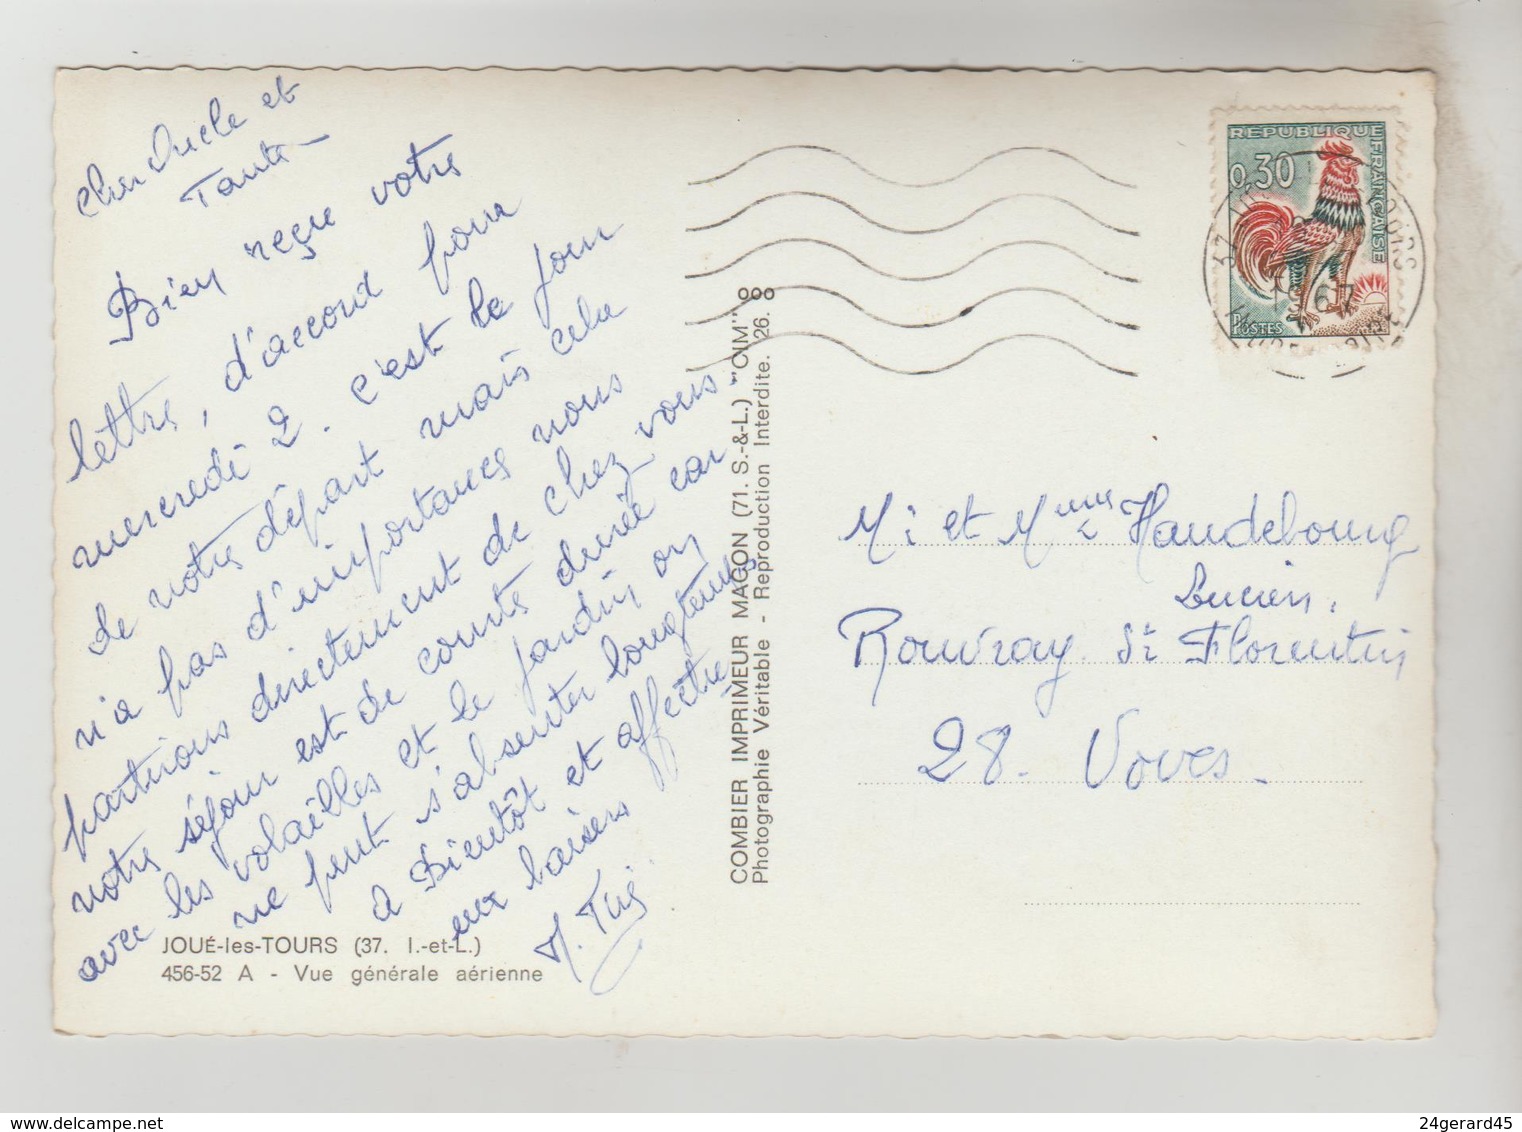 cher Oncle et
Tante
Bien reçu votre
lettre, d'accord pour
mercredi 2. c'est le jour
de notre départ mais cela
n'a pas d'importance nous
partirons directement de chez vous.
notre séjour est de courte durée car
avec les volailles et le jardin on
ne peut s'absenter longtemps
a Bientôt et affectueux baisers
JOUÉ-les-TOURS (37. I.-et-L.)
456-52 A - Vue générale aérienne
COMBIER IMPRIMEUR MACON (71. S.-&-L.) "CIM"
Photographie Véritable - Reproduction Interdite. 26.
REPUBLIQUE FRANÇAISE
0,30
POSTES
67
Mr et Mme Haudebourg
Lucien.
Rouvray St Florentin
28. Voves.
24gerard45